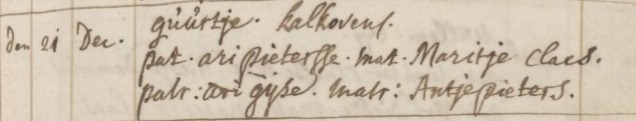 den 21 Dec. güürtje. kalkovens.
pat. ari pietersse. mat. Maritje Claes.
patr: ari gijse. matr: Antje pieters.